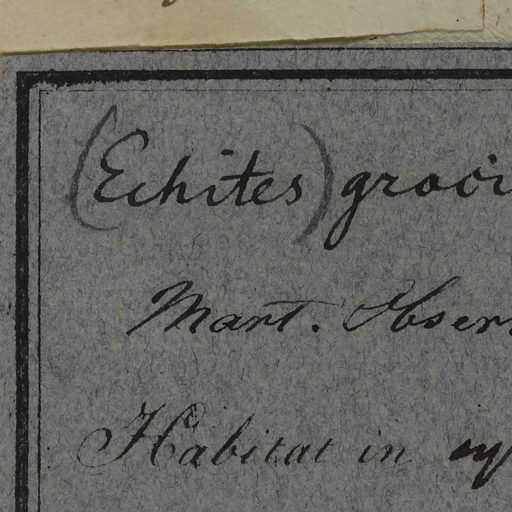 (Echites) graci
Mart. Obser
Habitat in